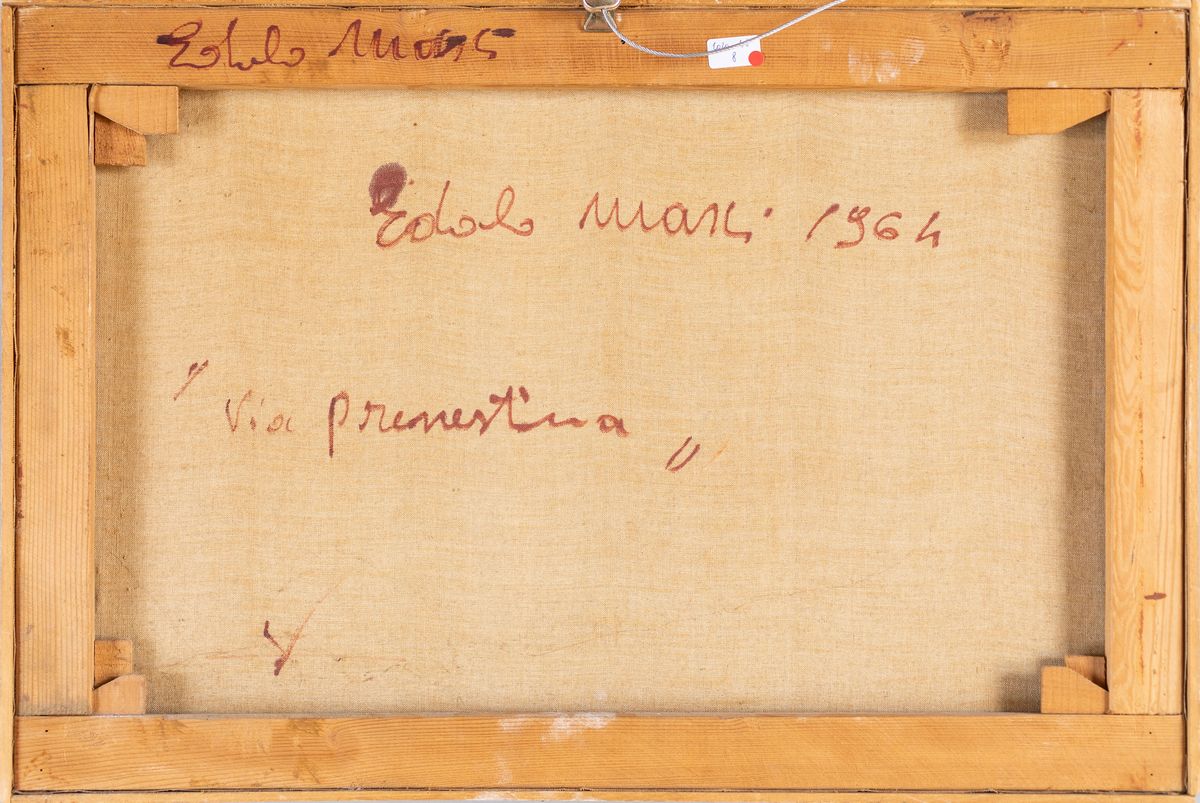 Edolo Masci
Edolo Masci 1964
"Via Prenestina"
8